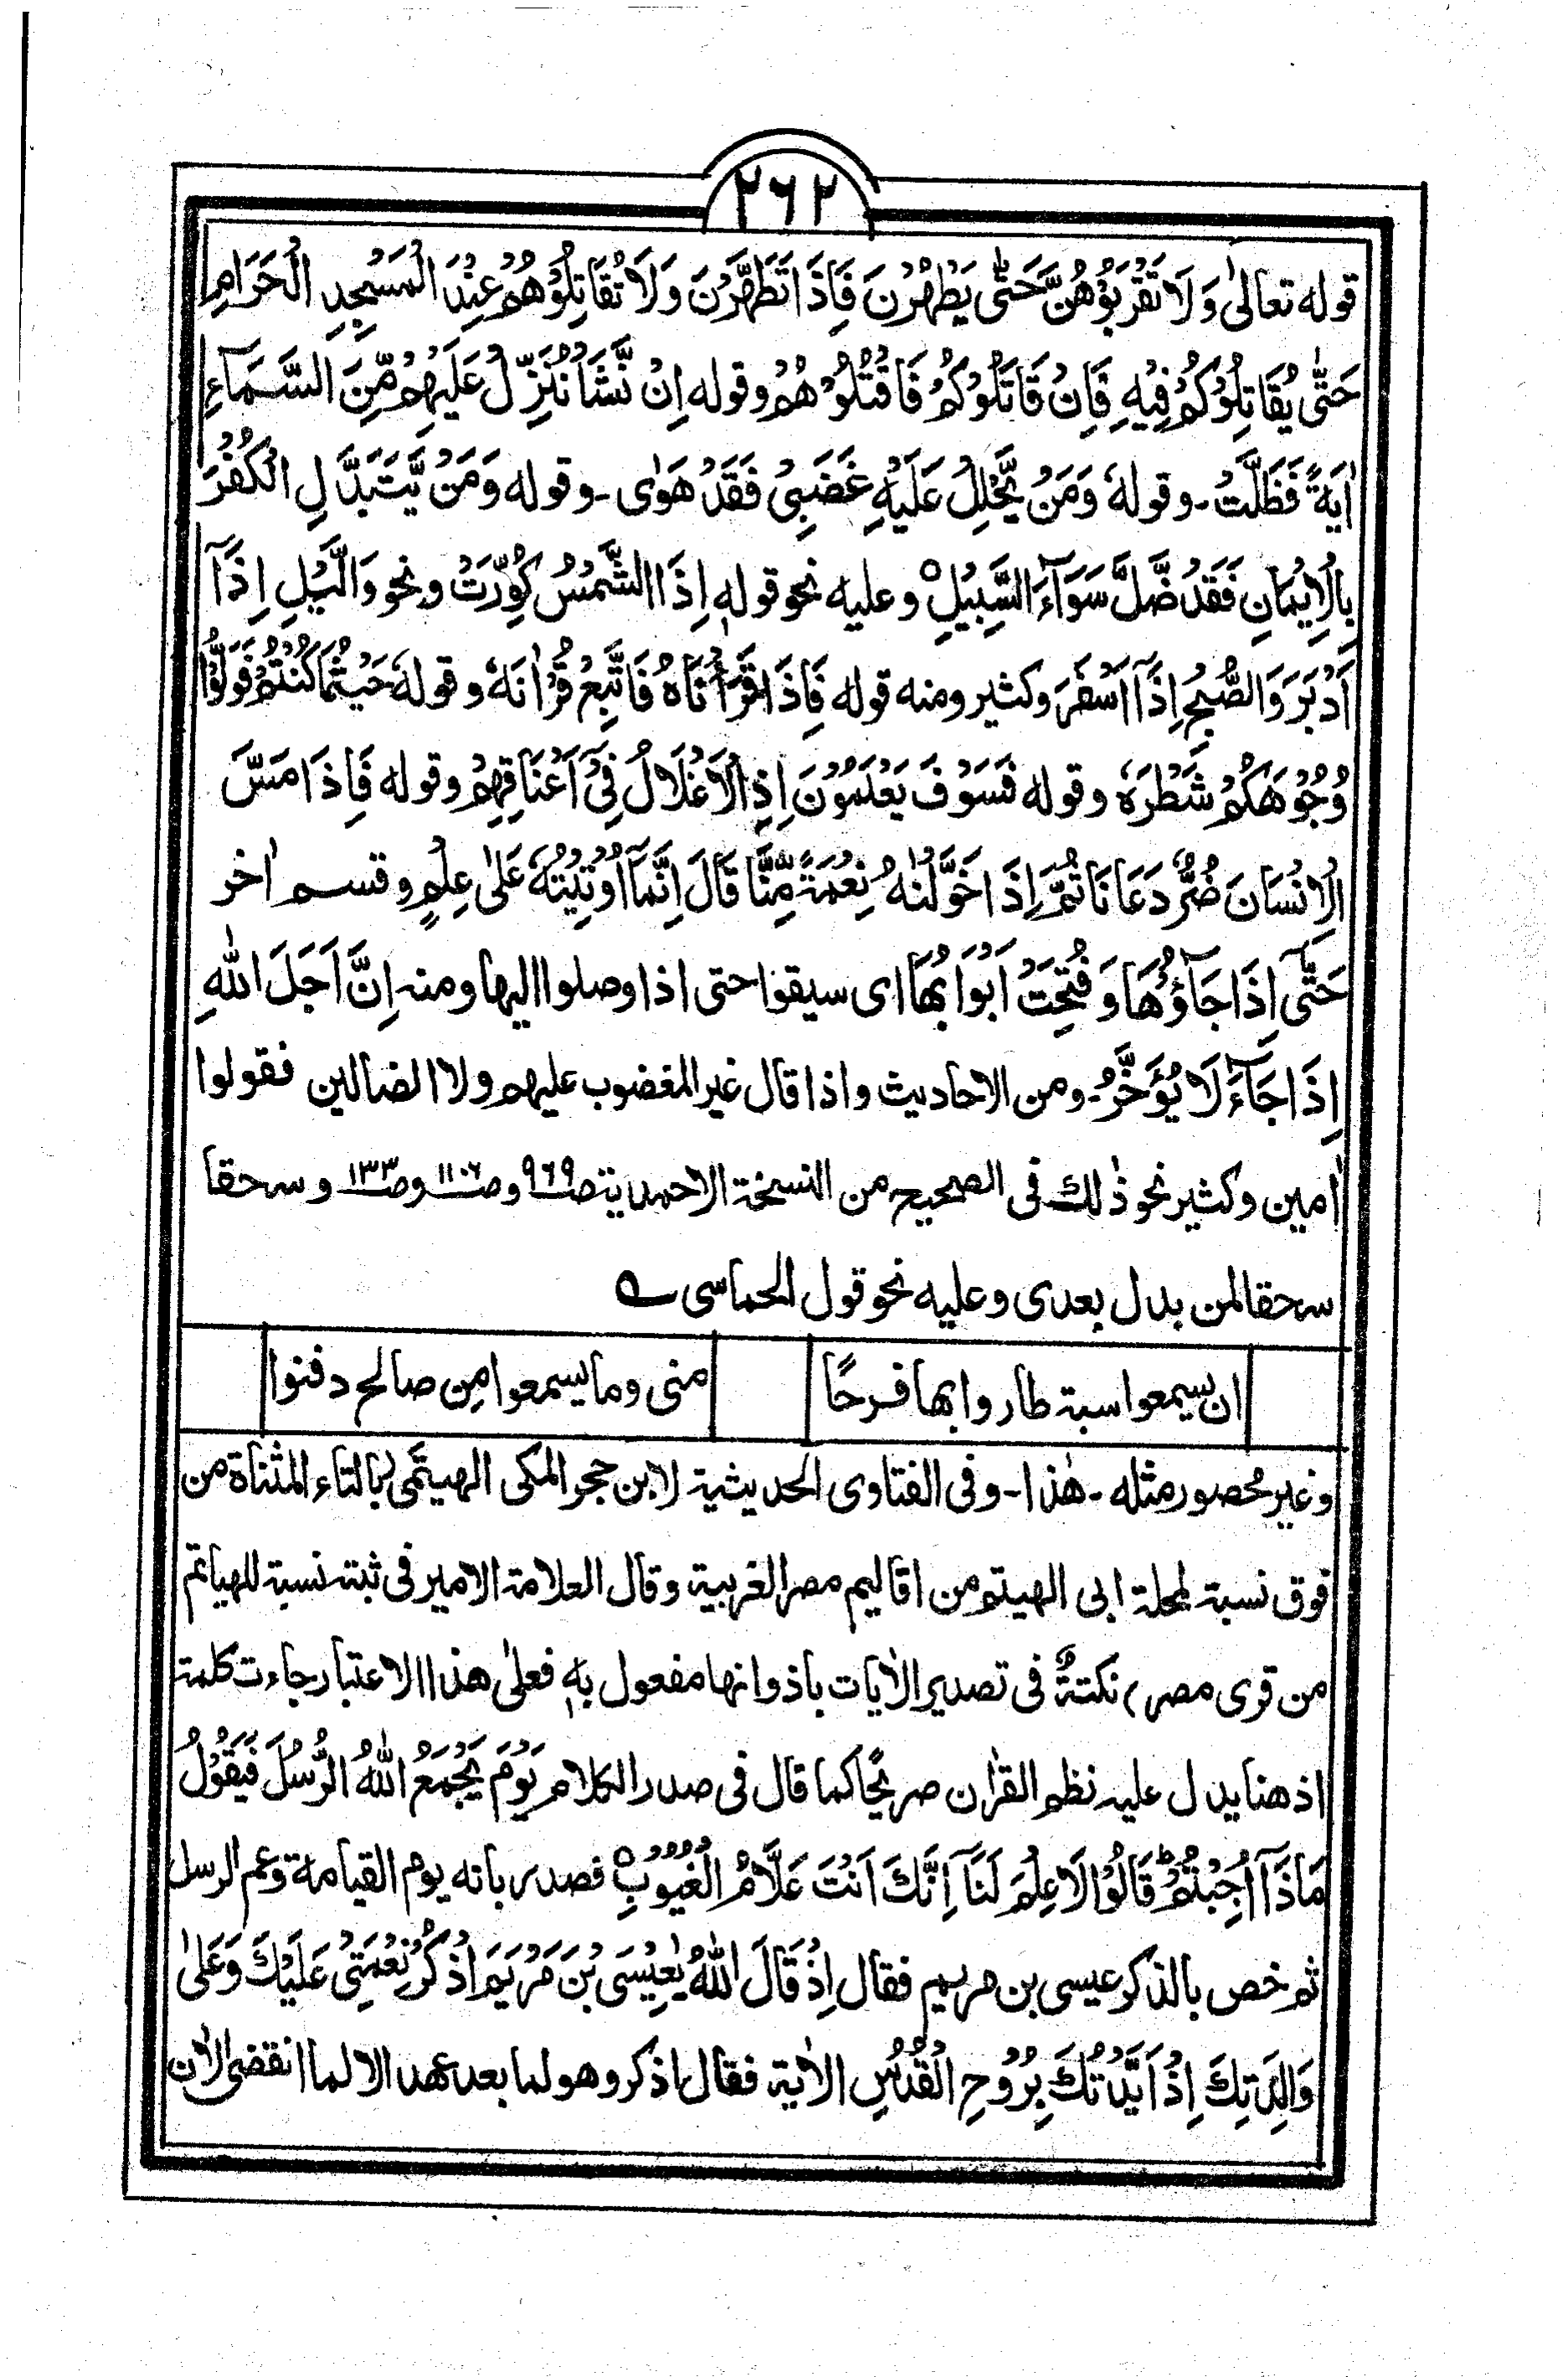 ٢٦٢
قوله تعالىٰ وَلَا تَقْرَبُوْهُنَّ حَتّٰى يَطْهُرْنَ فَاِذَا تَطَهَّرْنَ وَلَا تُقَاتِلُوْهُمْ عِنْدَ الْمَسْجِدِ الْحَرَامِ
حَتّٰى يُقَاتِلُوْكُمْ فِيْهِ فَاِنْ قَاتَلُوْكُمْ فَاقْتُلُوْهُمْ وقوله اِنْ نَّشَأْ نُنَزِّلْ عَلَيْهِمْ مِّنَ السَّمَآءِ
اٰيَةً فَظَلَّتْ ـ وقولهٗ وَمَنْ يَّحْلِلْ عَلَيْهِ غَضَبِىْ فَقَدْ هَوٰى ـ وقوله وَمَنْ يَّتَبَدَّلِ الْكُفْرَ
بِالْاِيْمَانِ فَقَدْ ضَلَّ سَوَآءَ السَّبِيْلِ ○ وعليه نحو قوله اِذَا الشَّمْسُ كُوِّرَتْ ونحو وَالَّيْلِ اِذَآ
اَدْبَرَ وَالصُّبْحِ اِذَآ اَسْفَرَ وكثير ومنه قوله فَاِذَا قَرَأْنَاهُ فَاتَّبِعْ قُرْاٰنَهٗ وقولهٗ حَيْثُمَا كُنْتُمْ فَوَلُّوْا
وُجُوْهَكُمْ شَطْرَهٗ وقوله فَسَوْفَ يَعْلَمُوْنَ اِذِ الْاَغْلَالُ فِىْٓ اَعْنَاقِهِمْ وقوله فَاِذَا مَسَّ
الْاِنْسَانَ ضُرٌّ دَعَانَا ثُمَّ اِذَا خَوَّلْنٰهُ نِعْمَةً مِّنَّا قَالَ اِنَّمَآ اُوْتِيْتُهٗ عَلٰى عِلْمٍ وقسم اٰخر
حَتّٰٓى اِذَا جَآؤُهَا وَفُتِحَتْ اَبْوَابُهَا اى سيقوا حتى اذا وصلوا اليها ومنه اِنَّ اَجَلَ اللّٰهِ
اِذَا جَآءَ لَا يُؤَخَّرُ ـ ومن الاحاديث واذا قال غير المغضوب عليهم ولا الضالين فقولوا
اٰمين وكثير نحو ذٰلك فى الصحيح من النسخة الاحمدية صـ٩٦٩ وصـ١١٠٦ وصـ١٣٣ وسحقا
سحقا لمن بدل بعدى وعليه نحو قول الحماسى ؎
ان يسمعوا سبة طاروا بها فرحًا منى وما يسمعوا مِن صالح دفنوا
وغير محصور مثله ـ هٰذا ـ وفى الفتاوى الحديثية لابن حجر المكى الهيتمى (بالتاء المثناة من
فوق نسبة لمحلة ابى الهيتم من اقاليم مصر الغربية وقال العلامة الامير فى ثبته نسبة للهياتم
من قرى مصر) نكتةٌ فى تصدير الاٰيات باذ وانها مفعول بهٖ فعلىٰ هذا الاعتبار جاءت كلمة
اذ هنا يدل عليه نظم القراٰن صريحًا كما قال فى صدر الكلام يَوْمَ يَجْمَعُ اللّٰهُ الرُّسُلَ فَيَقُوْلُ
مَاذَآ اُجِبْتُمْ ؕ قَالُوْا لَا عِلْمَ لَنَا اِنَّكَ اَنْتَ عَلَّامُ الْغُيُوْبِ ○ فصدر بانه يوم القيامة وعم الرسل
ثم خص بالذكر عيسى بن مريم فقال اِذْ قَالَ اللّٰهُ يٰعِيْسَى بْنَ مَرْيَمَ اذْكُرْ نِعْمَتِىْ عَلَيْكَ وَعَلٰى
وَالِدَتِكَ اِذْ اَيَّدْتُّكَ بِرُوْحِ الْقُدُسِ الاٰية فقال اذكر وهو لما بعد عهد الا لما انقضى الاٰن